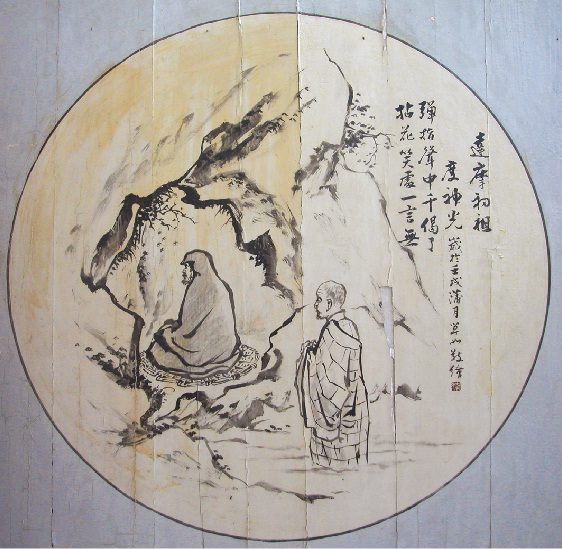 達摩初祖
度神光
歲於壬戌蒲月敬繪
彈指聲中千偈了
拈花笑處一言無